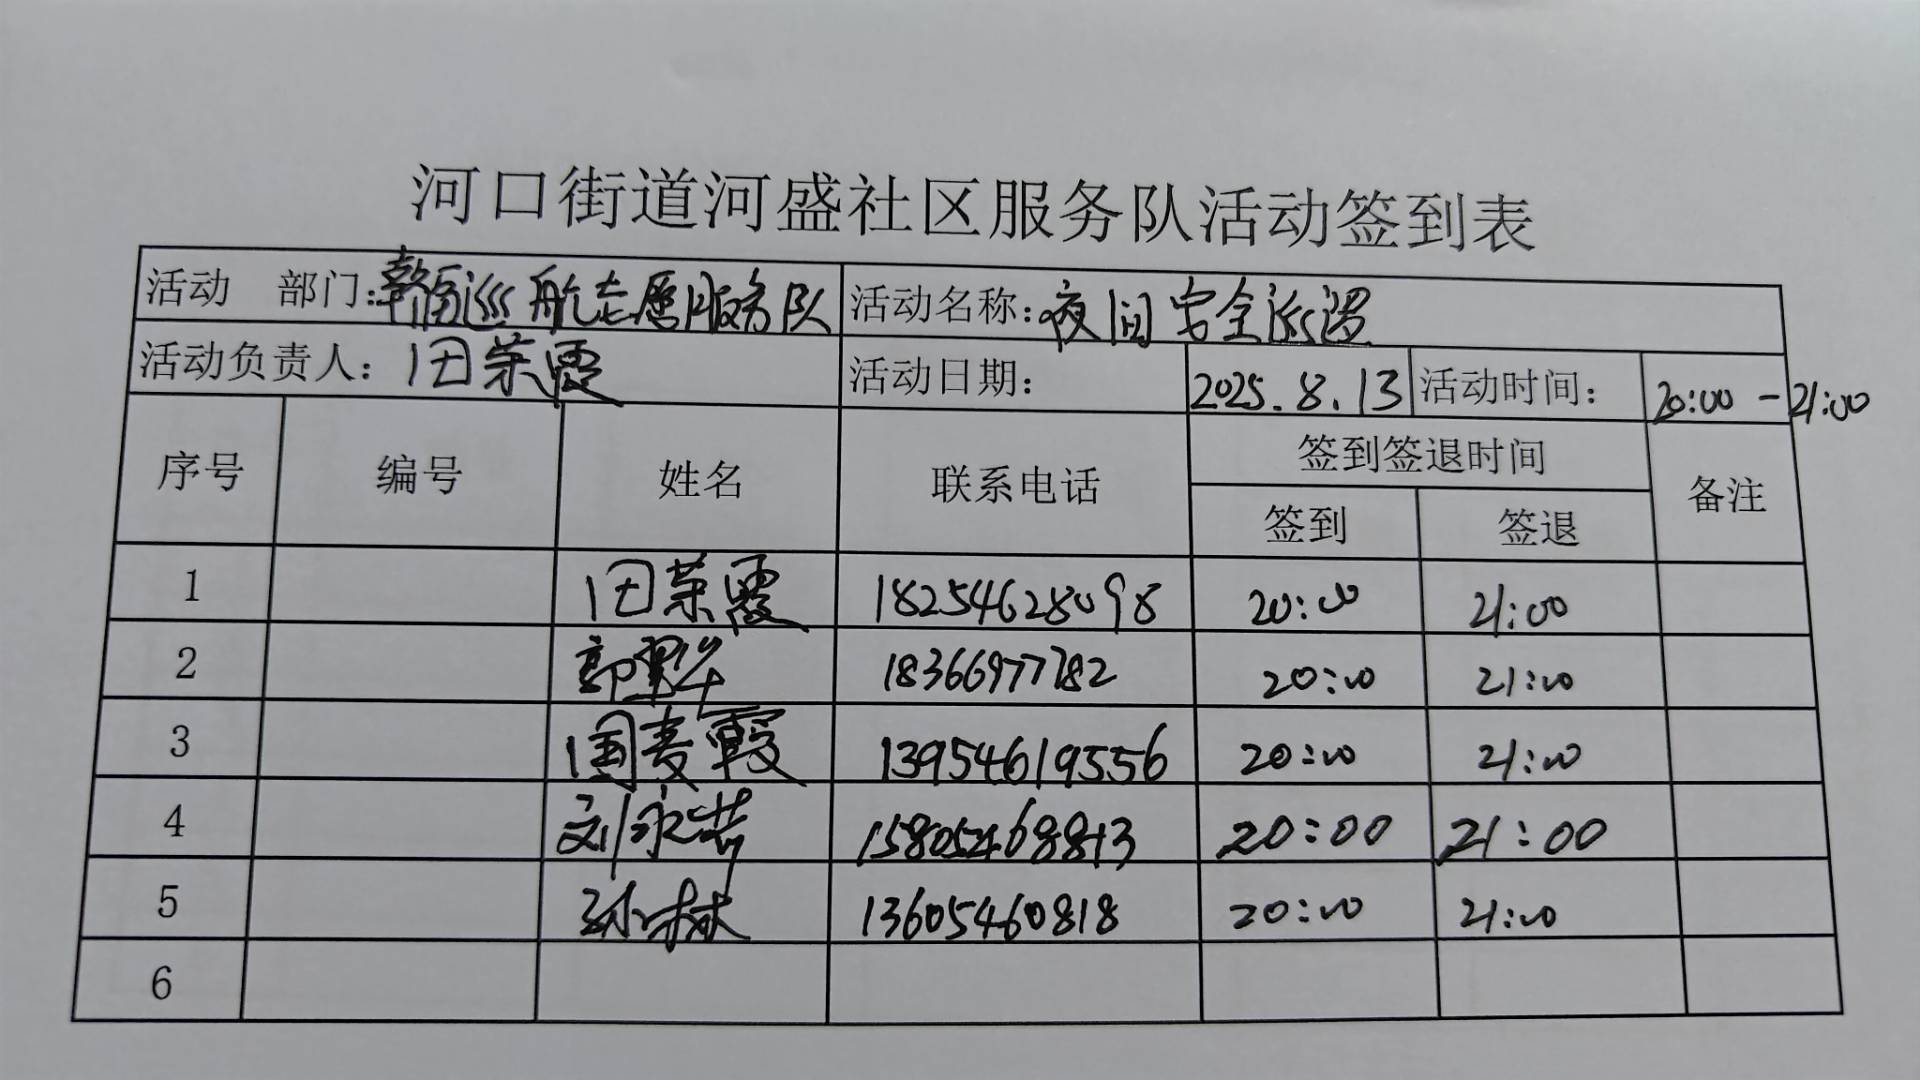 河口街道河盛社区服务队活动签到表
活动 部门:巡航志愿服务队 活动名称:夜间安全巡逻
活动负责人:田荣霞 活动日期: 2025.8.13 活动时间: 20:00-21:00
序号 编号 姓名 联系电话 签到签退时间 备注
签到 签退
1 田荣霞 18254628098 20:00 21:00
2 郭 18366977782 20:00 21:00
3 国麦霞 13954619556 20:00 21:00
4 刘永芳 15805468813 20:00 21:00
5 孙林 13605460818 20:00 21:00
6